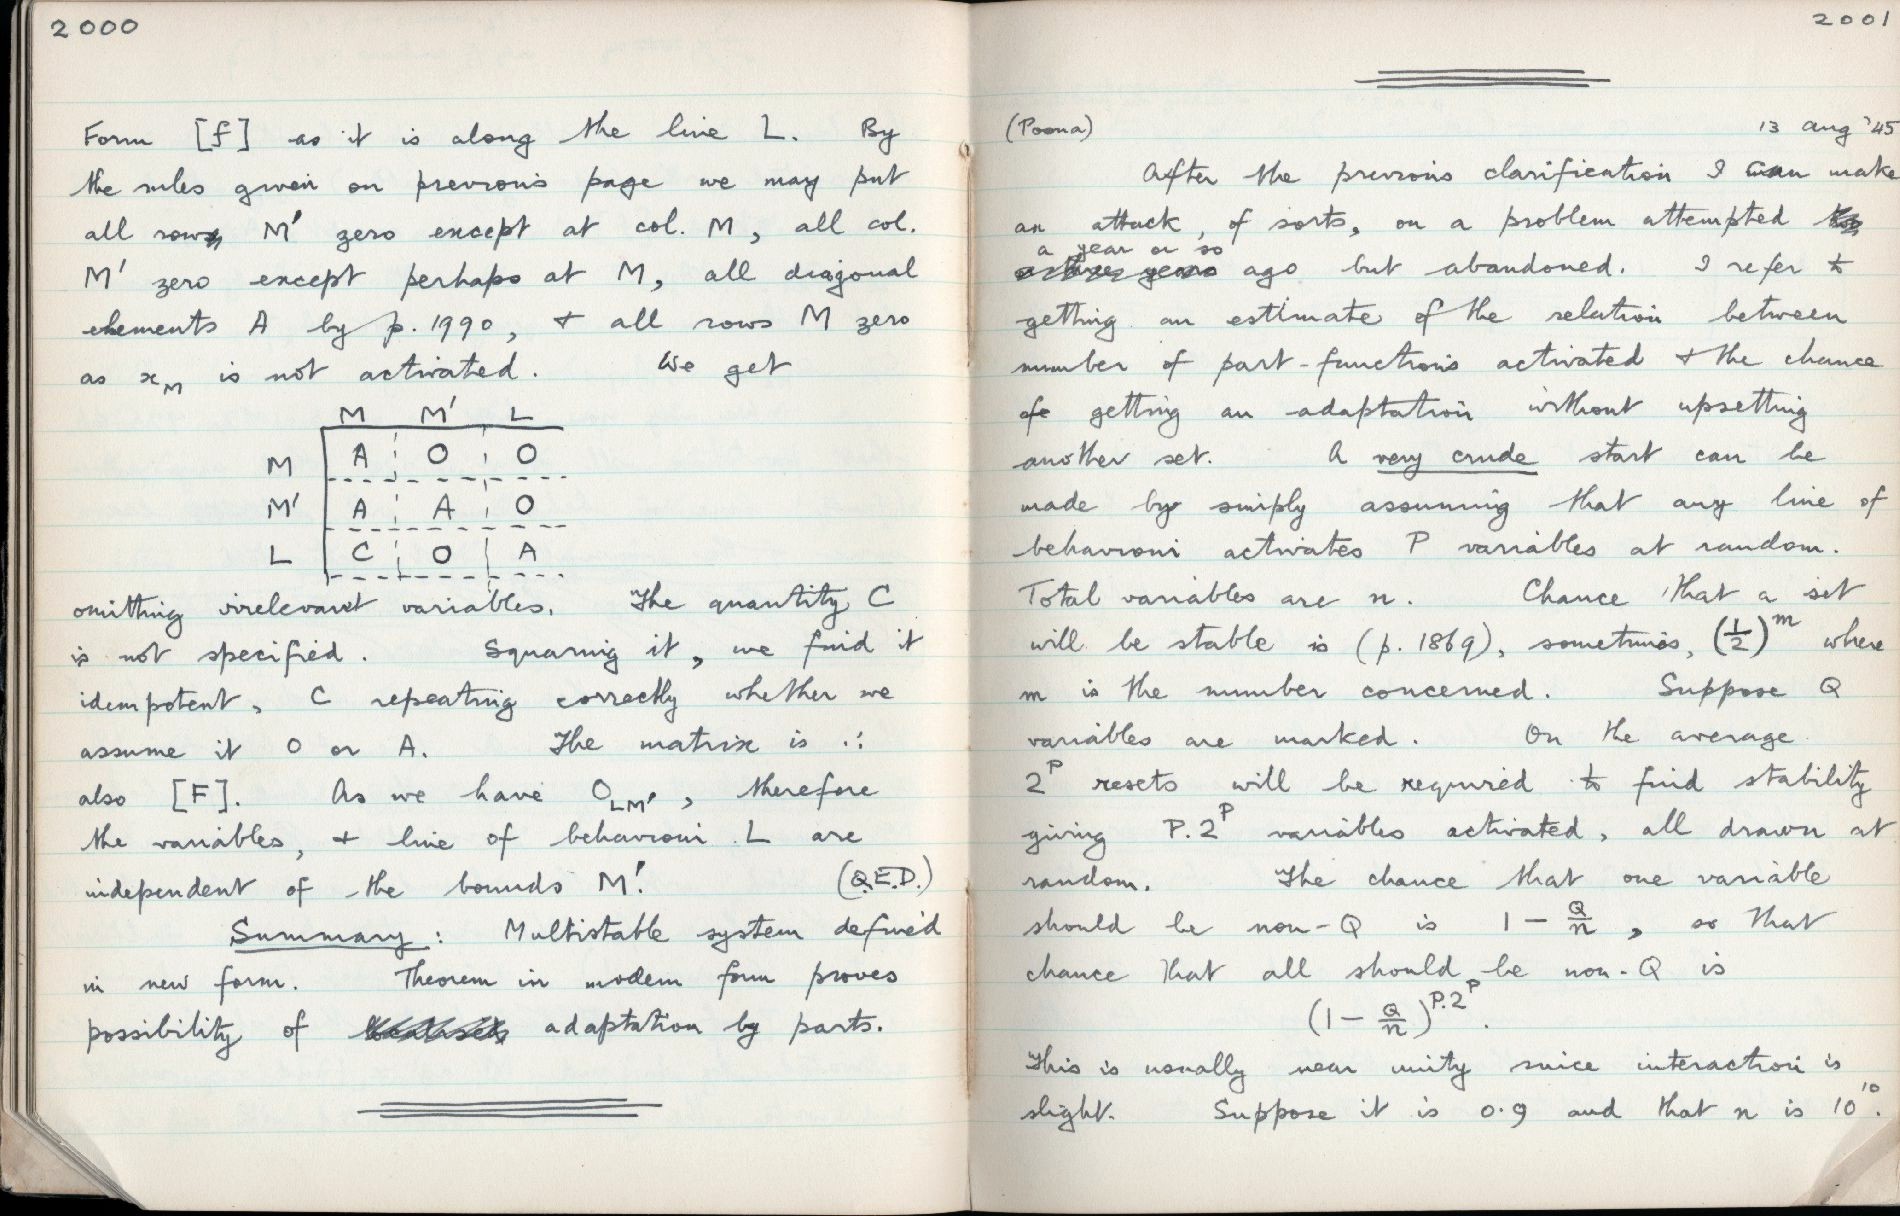 2000
Form [f] as it is along the line L. By
the rules given on previous page we may put
all row M' zero except at col. M, all col.
M' zero except perhaps at M, all diagonal
elements A by p. 1990, & all rows M zero
as x_M is not activated. We get
M M' L
M A O O
M' A A O
L C O A
omitting irrelevant variables. The quantity C
is not specified. Squaring it, we find it
idempotent, C repeating correctly whether we
assume it O or A. The matrix is ∴
also [F]. As we have O_LM', therefore
the variables, & line of behaviour L are
independent of the bounds M'. (Q.E.D.)
Summary: Multistable system defined
in new form. Theorem in modern form proves
possibility of adaptation by parts.
2001
(Poona) 13 Aug '45
After the previous clarification I can make
an attack, of sorts, on a problem attempted
a year or so
ago but abandoned. I refer to
getting an estimate of the relation between
number of part-functions activated & the chance
of getting an adaptation without upsetting
another set. A very crude start can be
made by simply assuming that any line of
behaviour activates P variables at random.
Total variables are n. Chance that a set
will be stable is (p. 1869), sometimes, (1/2)^m where
m is the number concerned. Suppose Q
variables are marked. On the average
2^P resets will be required to find stability
giving P.2^P variables activated, all drawn at
random. The chance that one variable
should be non-Q is 1 − Q/n, so that
chance that all should be non-Q is
(1 − Q/n)^P.2^P.
This is usually near unity since interaction is
slight. Suppose it is 0.9 and that n is 10^10.